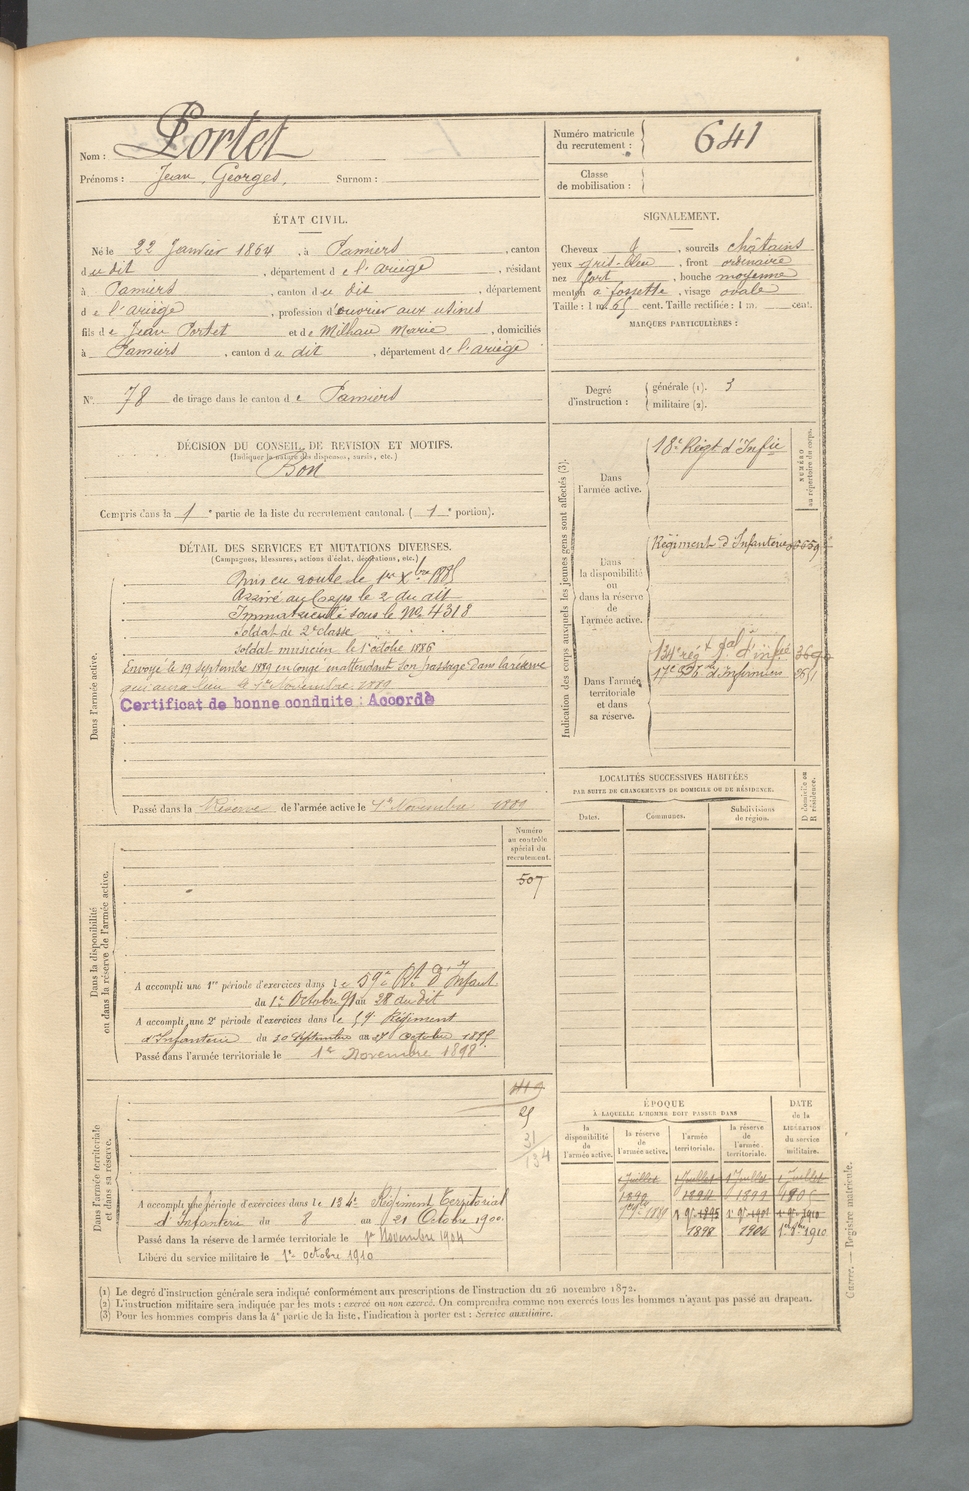 Nom : Portet
Prénoms : Jean, Georges, Surnom :
Numéro matricule du recrutement : 641
Classe de mobilisation :
ÉTAT CIVIL.
Né le 22 Janvier 1864, à Pamiers, canton
du dit, département de l'ariège, résidant
à Pamiers, canton du dit, département
de l'ariège, profession d'ouvrier aux usines
fils de Jean Portet et de Milhau Marie, domiciliés
à Pamiers, canton du dit, département de l'ariège
SIGNALEMENT.
Cheveux et, sourcils châtains
yeux gris-bleu, front ordinaire
nez fort, bouche moyenne
menton à fossette, visage ovale
Taille : 1 m. 65 cent. Taille rectifiée : 1 m. cent.
MARQUES PARTICULIÈRES :
N° 78 de tirage dans le canton de Pamiers
Degré d'instruction : générale (1). 3
militaire (2).
DÉCISION DU CONSEIL DE REVISION ET MOTIFS.
(Indiquer la nature des dispenses, sursis, etc.)
Bon
Compris dans la 1e partie de la liste du recrutement cantonal. (1e portion).
DÉTAIL DES SERVICES ET MUTATIONS DIVERSES.
(Campagnes, blessures, actions d'éclat, décorations, etc.)
Dans l'armée active.
Mis en route le 1er Xbre 1885
Arrivé au Corps le 2 du dit
Immatriculé sous le No 4318
Soldat de 2e classe
Soldat musicien le 1 octobre 1886
Envoyé le 19 Septembre 1889 en congé en attendant son passage dans la réserve
qui aura lieu le 1er Novembre 1889
Certificat de bonne conduite : Accordé
Passé dans la Réserve de l'armée active le 1er Novembre 1889
Indication des corps auxquels les jeunes gens sont affectés (3).
NUMÉRO au répertoire du corps.
Dans l'armée active.
18e Régt d'Infie
Dans la disponibilité ou dans la réserve de l'armée active.
Régiment d'Infanterie
Dans l'armée territoriale et dans sa réserve.
134e régt tal d'infie
17e son d'Infirmiers
LOCALITÉS SUCCESSIVES HABITÉES
PAR SUITE DE CHANGEMENTS DE DOMICILE OU DE RÉSIDENCE.
Dates.
Communes.
Subdivisions de région.
D domicile ou R résidence.
Dans la disponibilité ou dans la réserve de l'armée active.
Numéro au contrôle spécial du recrutement.
507
A accompli une 1re période d'exercices dans le 59e Rt d'Infant
du 1er Octobre 91 au 28 du dit
A accompli une 2e période d'exercices dans le 59 Régiment
d'Infanterie du 30 Septembre au 27 Octobre 1895
Passé dans l'armée territoriale le 1er Novembre 1898
Dans l'armée territoriale et dans sa réserve.
25
31/134
A accompli une période d'exercices dans le 134e Régiment Territorial
d'Infanterie du 8 au 21 Octobre 1900.
Passé dans la réserve de l'armée territoriale le 1er Novembre 1904
Libéré du service militaire le 1er octobre 1910
ÉPOQUE
À LAQUELLE L'HOMME DOIT PASSER DANS
la disponibilité de l'armée active.
la réserve de l'armée active.
l'armée territoriale.
la réserve de l'armée territoriale.
DATE de la LIBÉRATION du service militaire.
Juillet 1 Juillet 1 Juillet 1 Juillet
1894 1899
1889 1895 1901 1910
1898 1904 1910
(1) Le degré d'instruction générale sera indiqué conformément aux prescriptions de l'instruction du 26 novembre 1872.
(2) L'instruction militaire sera indiquée par les mots : exercé ou non exercé. On comprendra comme non exercés tous les hommes n'ayant pas passé au drapeau.
(3) Pour les hommes compris dans la 4e partie de la liste, l'indication à porter est : Service auxiliaire.
Guerre. — Registre matricule.